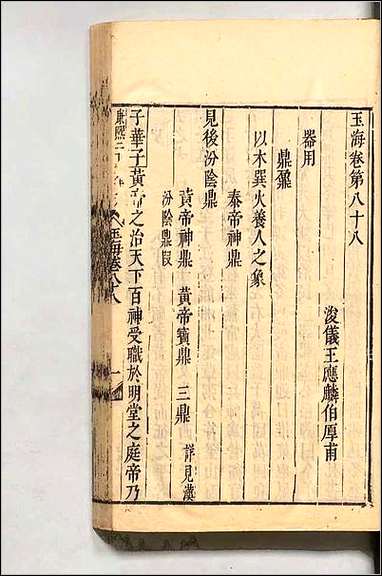 玉海卷第八十八
浚儀王應麟伯厚甫
器用
鼎鼐
以木巽火養人之象
泰帝神鼎
見後汾陰鼎
黃帝神鼎 黃帝寶鼎 三鼎 詳見漢
汾陰鼎叚
子華子黃帝之治天下百神受職於明堂之庭帝乃
康熙二
玉海卷八十八
一